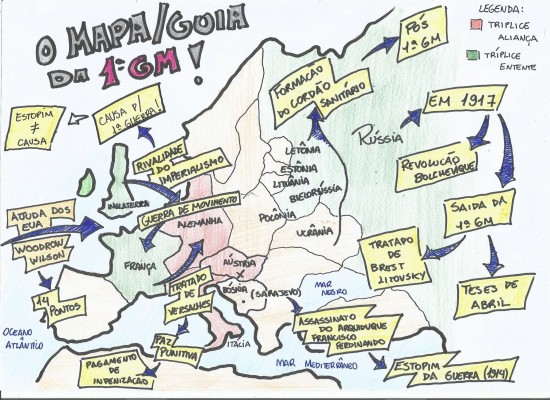 O MAPA/GUIA
DA 1ª GM!
LEGENDA:
TRIPLICE
ALIANÇA
TRÍPLICE
ENTENTE
PÓS
1ª GM
FORMAÇÃO
DO CORDÃO
SANITÁRIO
ESTOPIM
≠
CAUSA
CAUSA P/
1ª GUERRA!
RIVALIDADE
DO
IMPERIALISMO
RÚSSIA
EM 1917
REVOLUÇÃO
BOLCHEVIQUE
SAÍDA DA
1ª GM
TRATADO DE
BREST
LITOVSKY
TESES DE
ABRIL
LETÔNIA
ESTÔNIA
LITUÂNIA
BIELORÚSSIA
POLÔNIA
UCRÂNIA
INGLATERRA
GUERRA DE MOVIMENTO
ALEMANHA
AJUDA DOS
EUA
WOODROW
WILSON
14
PONTOS
FRANÇA
ÁUSTRIA
X
BÓSNIA (SARAJEVO)
TRATADO
DE
VERSALHES
PAZ
PUNITIVA
PAGAMENTO
DE
INDENIZAÇÃO
ITÁLIA
OCEANO
ATLÂNTICO
MAR
NEGRO
MAR MEDITERRÂNEO
ASSASSINATO
DO ARQUIDUQUE
FRANCISCO
FERDINANDO
ESTOPIM
DA GUERRA (1914)